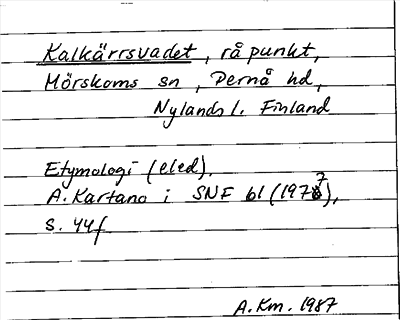 Kalkärrsvadet, råpunkt,
Mörskoms sn, Pernå hd,
Nylands l. Finland
Etymologi (eled).
A. Kartano i SNF 61 (1977),
s. 44f
A.Km. 1987